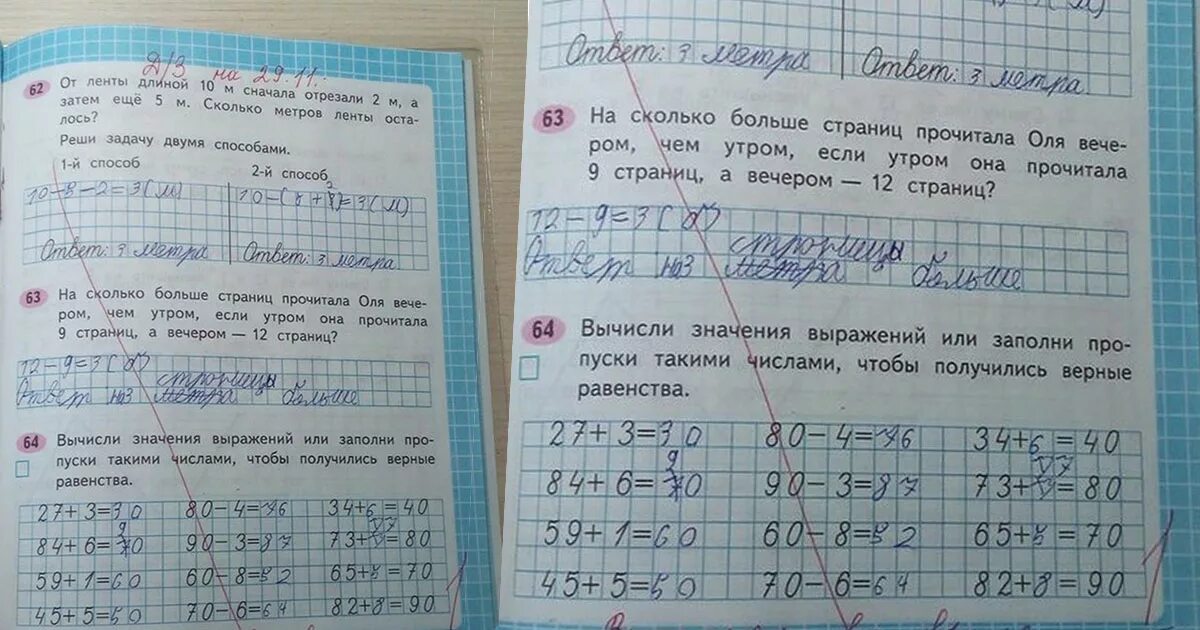 Д/З на 29.11.
62 От ленты длиной 10 м сначала отрезали 2 м, а
затем ещё 5 м. Сколько метров ленты оста-
лось?
Реши задачу двумя способами.
1-й способ 2-й способ
10-5-2=3(м) =3(м)
Ответ: 3 метра Ответ: 3 метра
63 На сколько больше страниц прочитала Оля вече-
ром, чем утром, если утром она прочитала
9 страниц, а вечером — 12 страниц?
12-9=3
страницы
Ответ на3 метра больше
64 Вычисли значения выражений или заполни про-
пуски такими числами, чтобы получились верные
равенства.
27+3=30 80-4=76 34+6=40
84+6=90 90-3=87 73+7=80
59+1=60 60-8=52 65+5=70
45+5=50 70-6=64 82+8=90
Ответ: 3 метра Ответ: 3 метра
63 На сколько больше страниц прочитала Оля вече-
ром, чем утром, если утром она прочитала
9 страниц, а вечером — 12 страниц?
12-9=3
страницы
Ответ на3 метра больше
64 Вычисли значения выражений или заполни про-
пуски такими числами, чтобы получились верные
равенства.
27+3=30 80-4=76 34+6=40
84+6=90 90-3=87 73+7=80
59+1=60 60-8=52 65+5=70
45+5=50 70-6=64 82+8=90